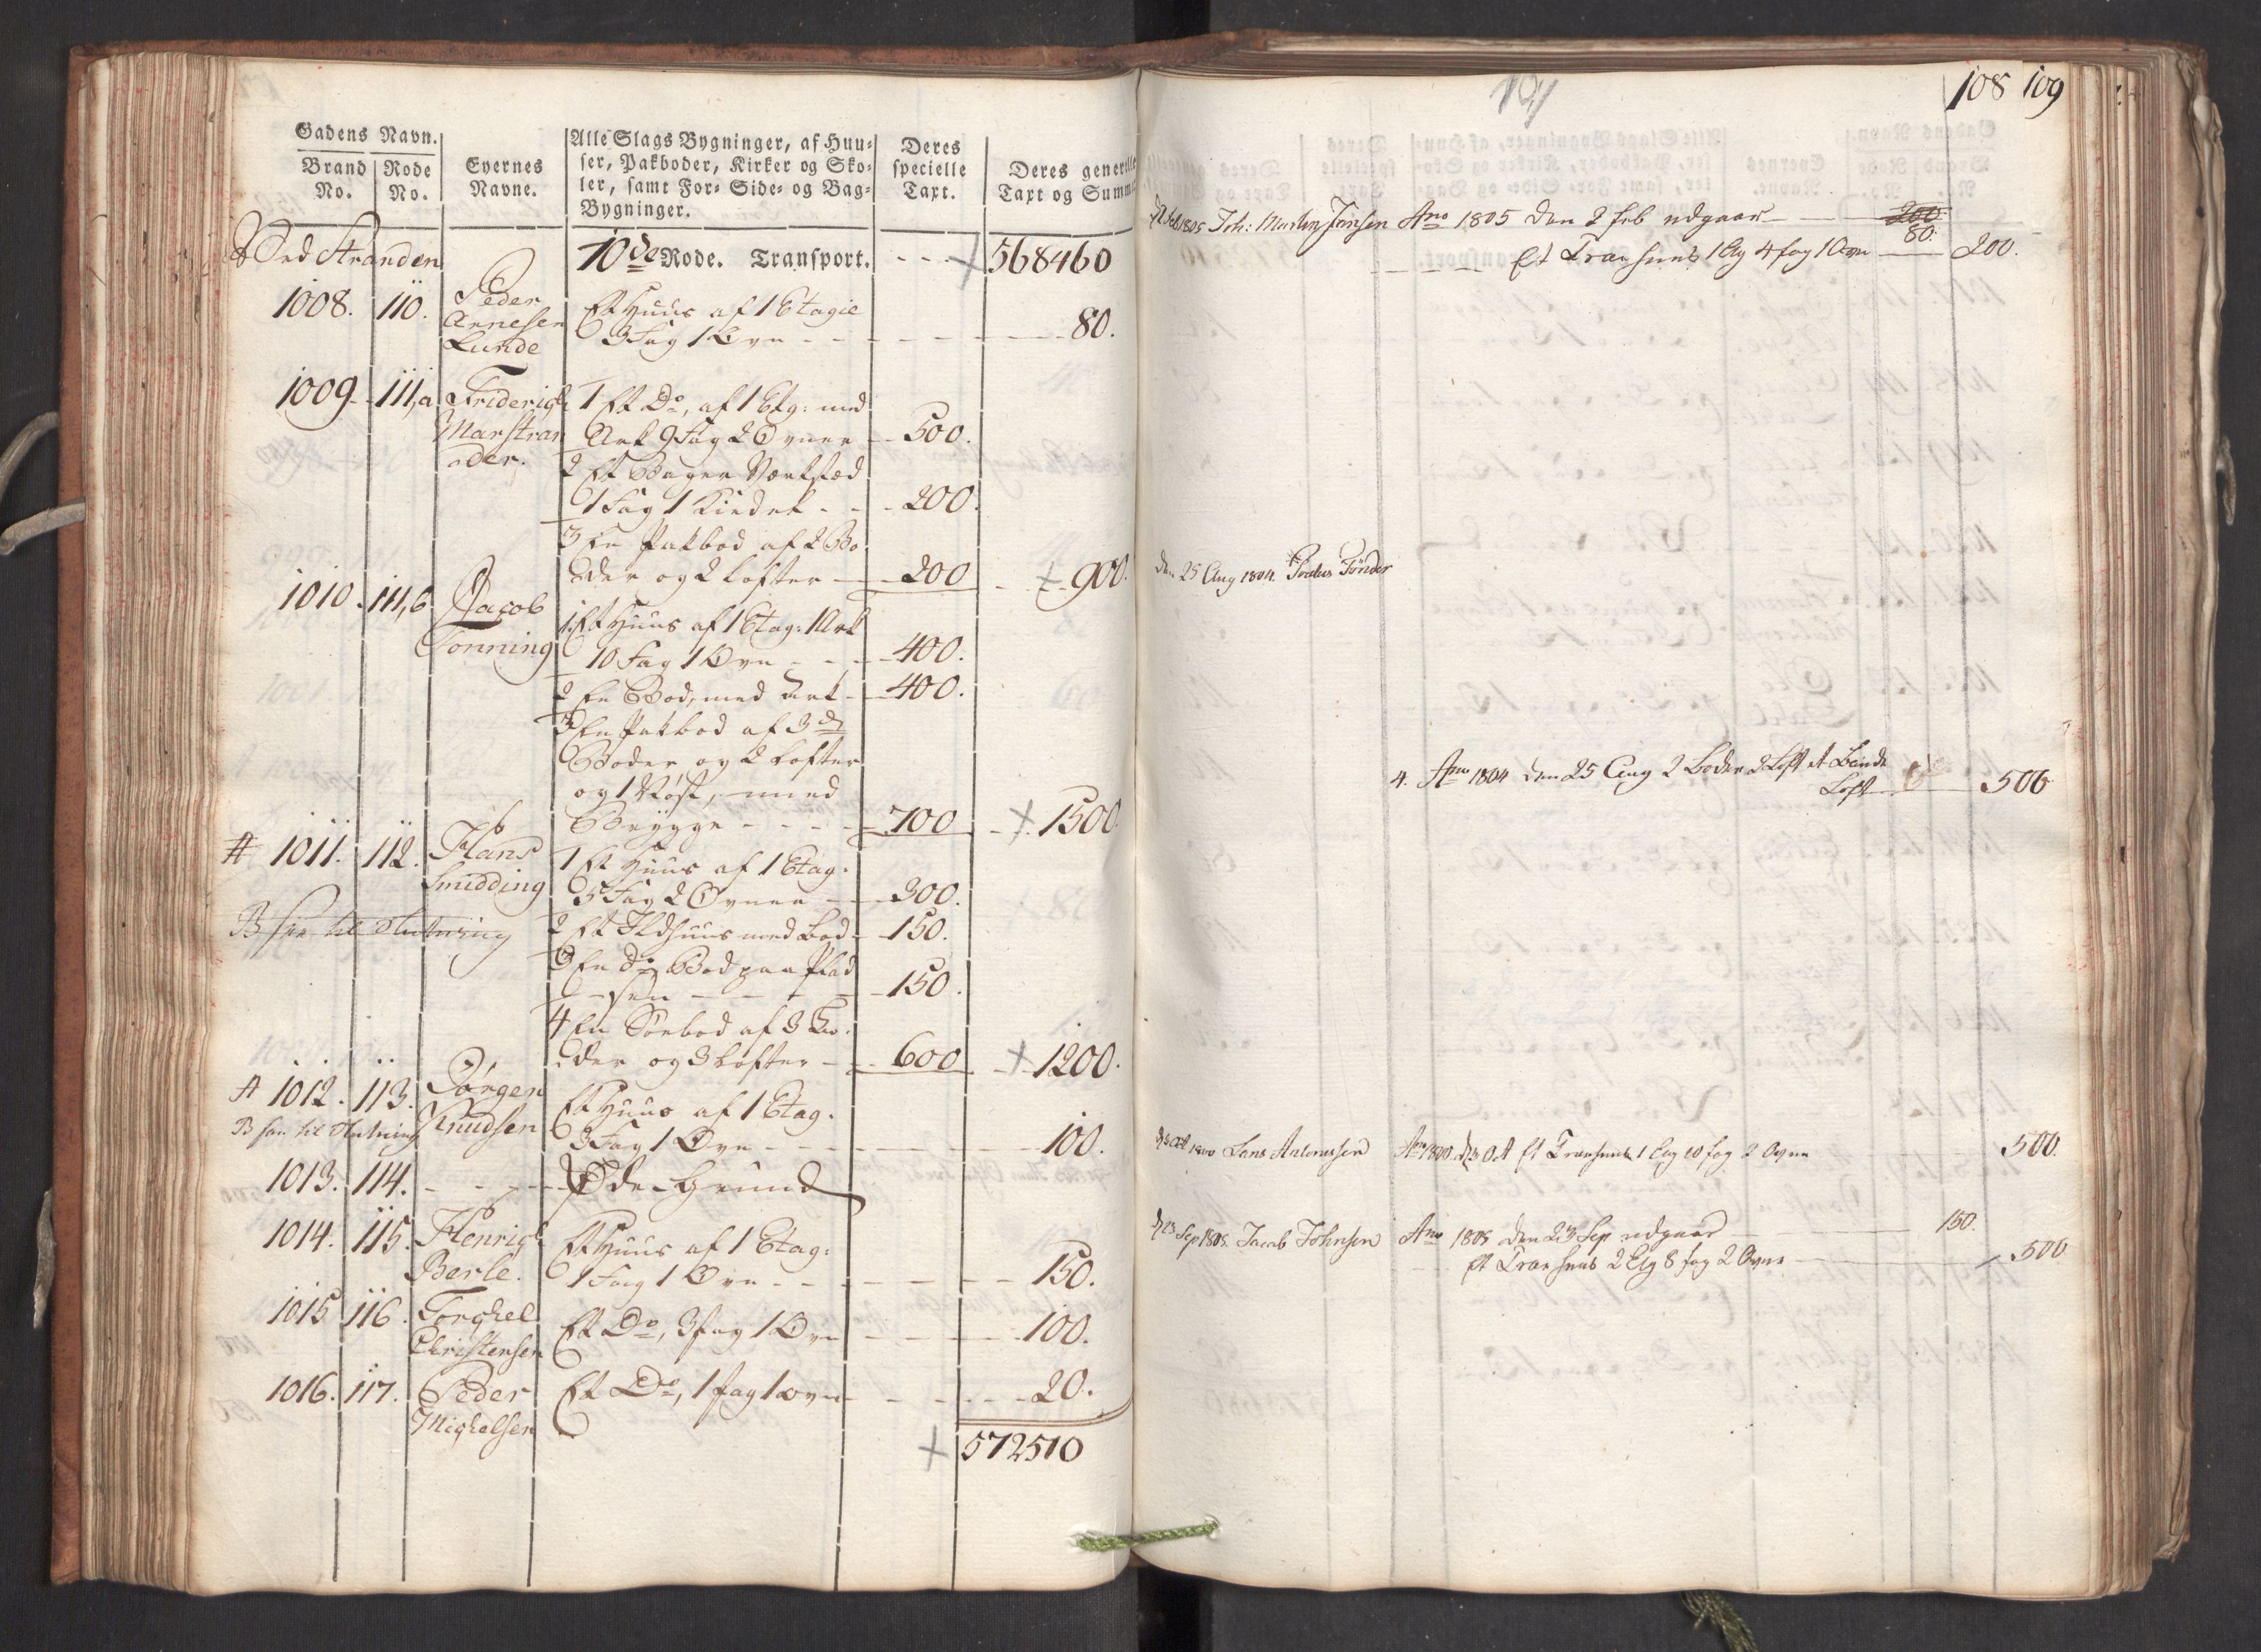 Gadens Navn.
Brand No.
Rode No.
Eyernes Navne.
Alle Slags Bygninger, af Huu-
ser, Pakboder, Kirker og Sko-
ler, samt For- Side- og Bag-
Bygninger.
Deres specielle Taxt.
Deres generelle Taxt og Summa
Ved Stranden
10de Rode. Transport. - - - 568460
1008. 110. Peder Et Huus af 1 Etagie
Arnesen 3 Fag 1 Ovn - - - 80.
Lunde
1009. 111,a Friderich 1 Et Do, af 1 Etg: med
Marstran Ark 9 Fag 2 Ovner - 500.
der. 2 Et Bager Værksted
1 Fag 1 Kiedel - - 200.
3 En Pakbod af 2 Bo
der og 2 Lofter - 200 - 900.
1010. 111,b Jacob 1. Et Huus af 1 Etag: 1 Ark
Tonning 10 Fag 1 Ovn - - 400.
2 En Bod, med Ark - 400.
3 En Pakbod af 3de
Boder og 2 Lofter
og 1 Røst, med
Brygge - - - 700 - 1500.
# 1011. 112. Hans 1 Et Huus af 1 Etag.
Smidding 5 Fag 2 Ovner - 300.
B 2 Et Ildhuus med Bod - 150.
3 En do Bod paa Plad
sen - - - 150.
4 En Søebod af 3 Bo-
der og 3 Lofter - 600 - 1200.
A 1012. 113. Jørgen Et Huus af 1 Etag.
B Knudsen 3 Fag 1 Ovn - - - 100.
1013. 114. - - - Øde Grund
1014. 115. Henrich Et Huus af 1 Etag:
Berle. 1 Fag 1 Ovn - - - 150.
1015 116. Torchel Et Do, 3 fag 1 Ovn - - - 100.
Christensen
1016. 117. Peder Et Do, 1 fag 1 ovn - - - 20.
Michelsen
572510
108 109
1805 Joh: Martin Jensen Ano 1805 den 2 Feb udgaar - 200
80.
Et Træ huus 1 Etg 4 fag 1 Ovn - 200.
den 25 Aug 1804. Tønder
4. Ano 1804 den 25 Aug 2 Boder 2 Loft et
Loft - 500
1800 Lars Antonissen Ano 1800 d 3 Oct Et Træhuus 1 Etg 10 fag 2 Ovne 500.
d 23 Sep 1805. Jacob Johnsen Ano 1805 den 23 Sep udgaar - 150.
Et Træ huus 2 Etg 8 fag 2 Ovne - 500